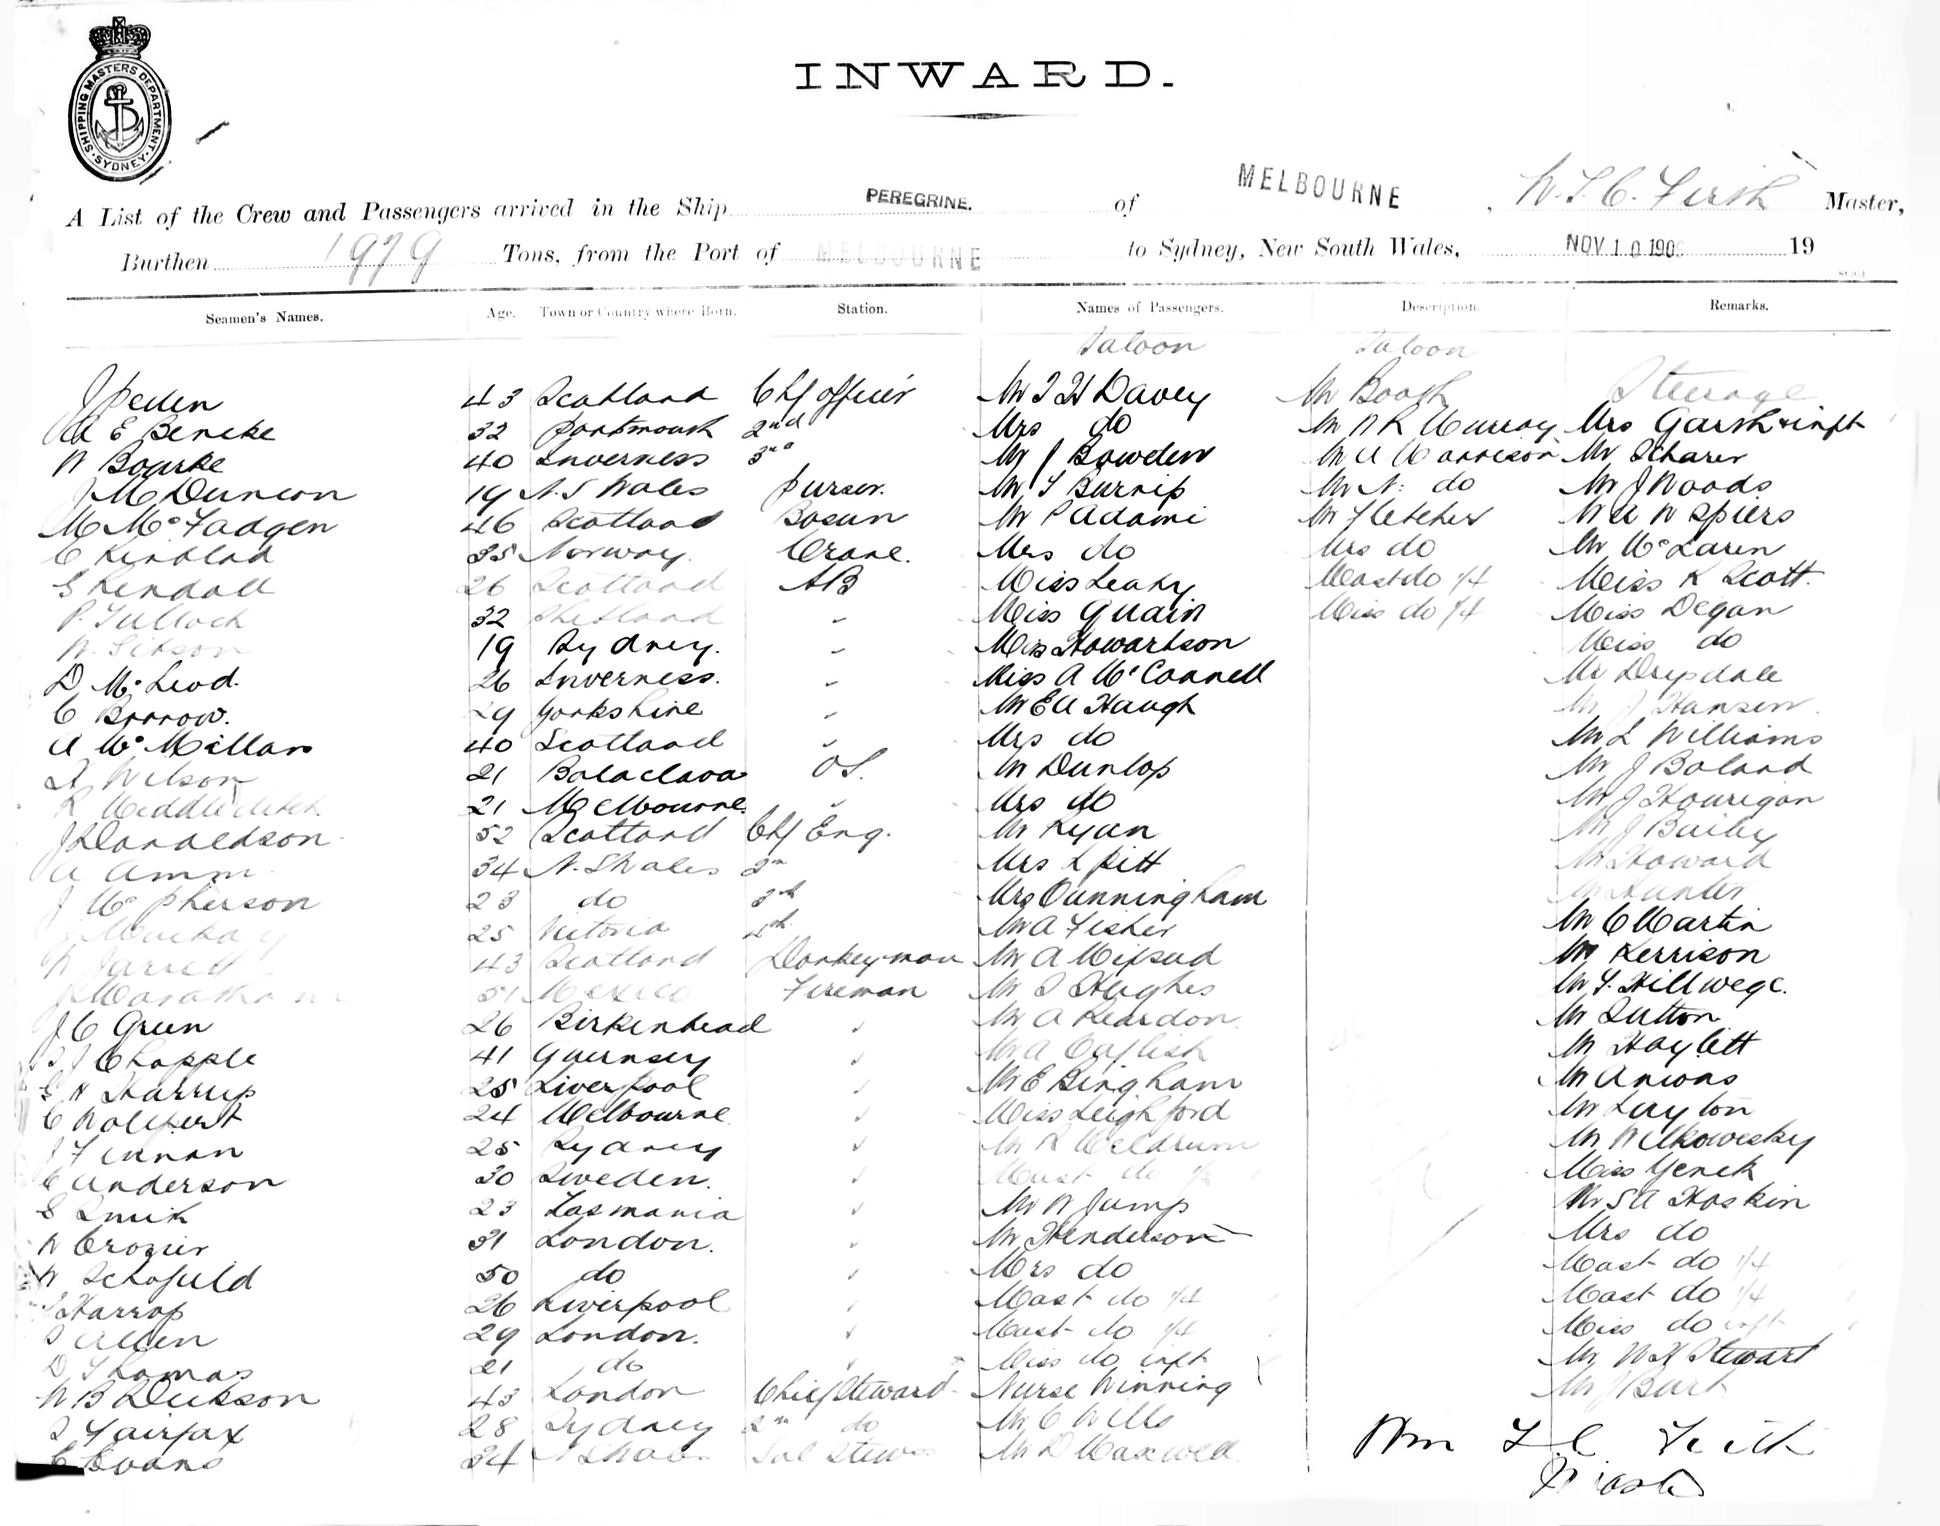 INWARD.
SHIPPING MASTERS DEPARTMENT. SYDNEY.
A List of the Crew and Passengers arrived in the Ship PEREGRINE. of MELBOURNE, W. T. C. Firth Master,
Burthen 1979 Tons, from the Port of MELBOURNE to Sydney, New South Wales, NOV 10 190 19
Seamen's Names. Age. Town or Country where Born. Station. Names of Passengers. Description. Remarks.
Saloon Saloon
J Peden 43 Scotland Chf officer Mr T H Davey Mr Booth Steerage
A E Bencke 32 Portsmouth 2nd Mrs do Mr A R Murray Mrs Garsh & inft
W Bourke 40 Inverness 3rd Mr J Bowden Mr A Morrison Mr Scharer
J M Duncan 19 N. S Wales Purser. Mr T Burnip Mr N. do Mr J Woods
M McFadgen 46 Scotland Bosun Mr P Adami Mr Fletcher Mr A W Spiers
C 35 Norway. Crane. Mrs do Mrs do Mr McLaren
S Kendall 26 Scotland AB Miss Leahy Mast do 1/4 Miss K Scott.
P. Tulloch 32 Shetland - Miss Quain Miss do 1/4 Miss Degan
W. 19 Sydney. - Mrs Howartson Miss do
D McLeod. 26 Inverness. - Miss A McConnell Mr Drysdale
C Brrow. 29 Yorkshire - Mr E A Haugh Mr J Hansen.
A McMillan 40 Scotland - Mrs do Mr L Williams
A Wilson 21 Balaclava OS. Mr Dunlop Mr J Boland
R Middleditch 21 Melbourne. " Mrs do Mr J Hourigan
J Donaldson. 52 Scotland Chf Eng. Mr Ryan Mr J Bailey
A Amm. 34 N. S Wales 2nd Mrs L Pitt Mr Howard
J McPherson 23 do 3rd Mrs Cunningham Mr Hunter
J Mackay 25 Victoria 4th Mr A Fisher Mr C Martin
W Jarrett 43 Scotland Donkeyman Mr A Mifsud Mr Kerrison
J 51 Mexico Fireman Mr T Hughes Mr T. Hillwege.
J C Green 26 Birkenhead " Mr A Reardon Mr Sutton
T J Chapple 41 Guernsey " Mr A Caflish Mr Haylett
G H Harrup 25 Liverpool " Mr E Bingham Mr Anions
C 24 Melbourne. " Miss Leighford Mr Layton
J Finnan 25 Sydney " Mr R Meldrum Mr Wilkowesky
C Anderson 30 Sweden. " Mast do 1/2 Miss Yenck
S Smith 23 Tasmania " Mr W Jump Mr S A Hoskin
W Crozier 31 London. " Mr Henderson Mrs do
W Schofield 50 do " Mrs do Mast do 1/4
Harrop 26 Liverpool " Mast do 1/4 Mast do 1/4
S Allen 29 London. " Mast do 1/4 Miss do inft
D Thomas 21 do " Miss do inft Mr W H Stewart
W B Dickson 43 London Chief Steward Nurse Winning Mr J Burt
S Fairfax 28 Sydney 2nd do Mr C Wills
E Evans 24 N S Wales Sal Stew Mr D Maxwell
Wm T C Firth
Master